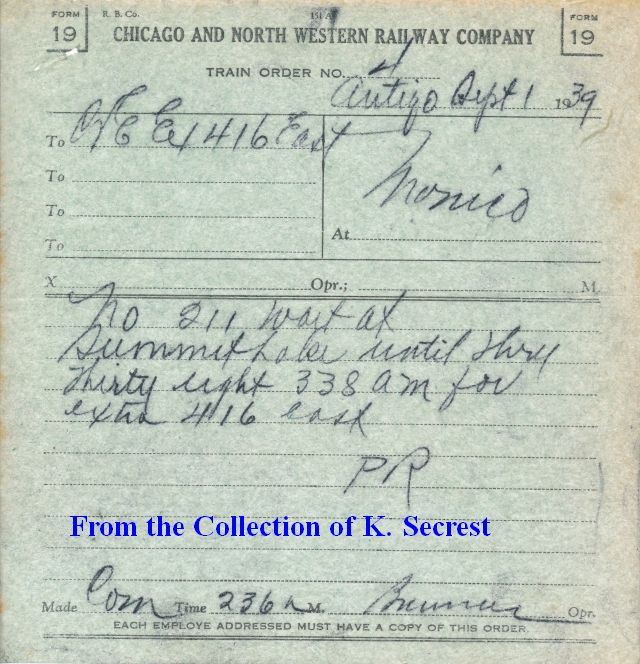 FORM 19 R. B. Co. 151 A FORM 19
CHICAGO AND NORTH WESTERN RAILWAY COMPANY
TRAIN ORDER NO. 4
Antigo Sept 1 1939
To C&E Ex 416 East
To
To
To
At Monico
X Opr.; M.
No 211 wait at
Summit Lake until three
thirty eight 338 am for
extra 416 east
PR
From the Collection of K. Secrest
Made Com Time 236 a M. Opr.
EACH EMPLOYE ADDRESSED MUST HAVE A COPY OF THIS ORDER.